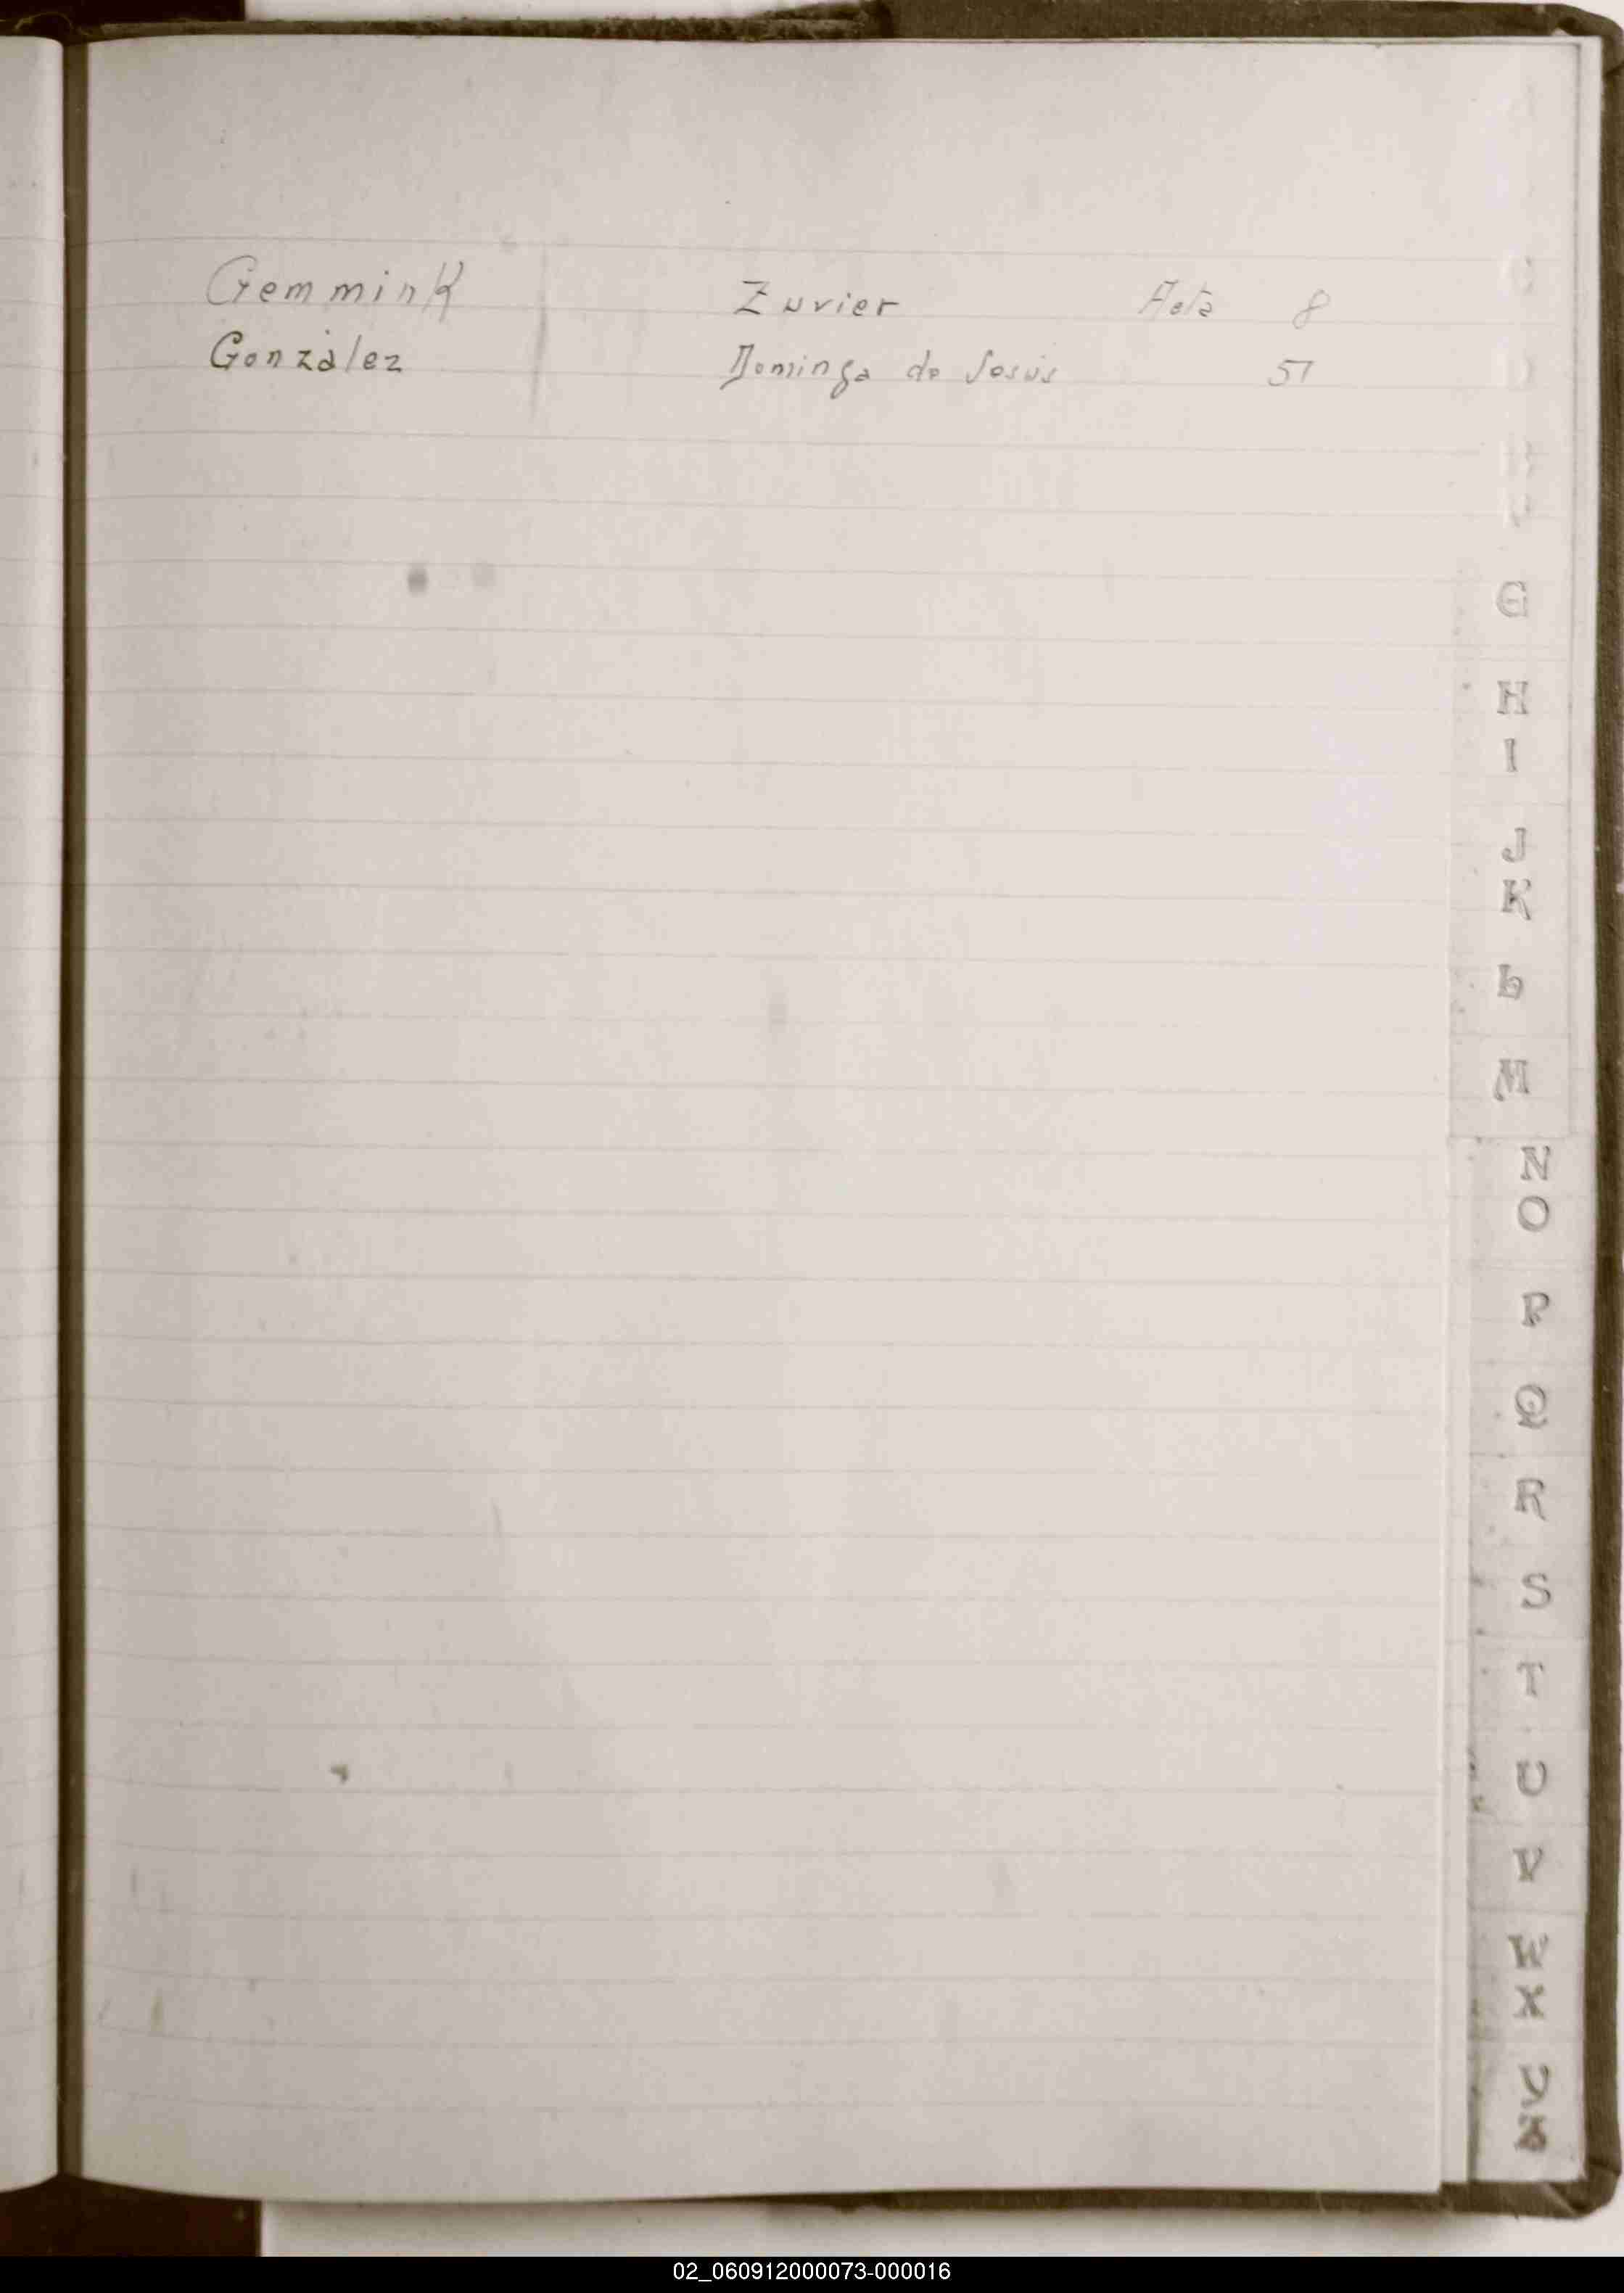 Gemmink Zuvier Acta 8
González Dominga de Jesús 51
G
H
I
J
K
L
M
N
O
P
Q
R
S
T
U
V
W
X
Y
Z
02_060912000073-000016